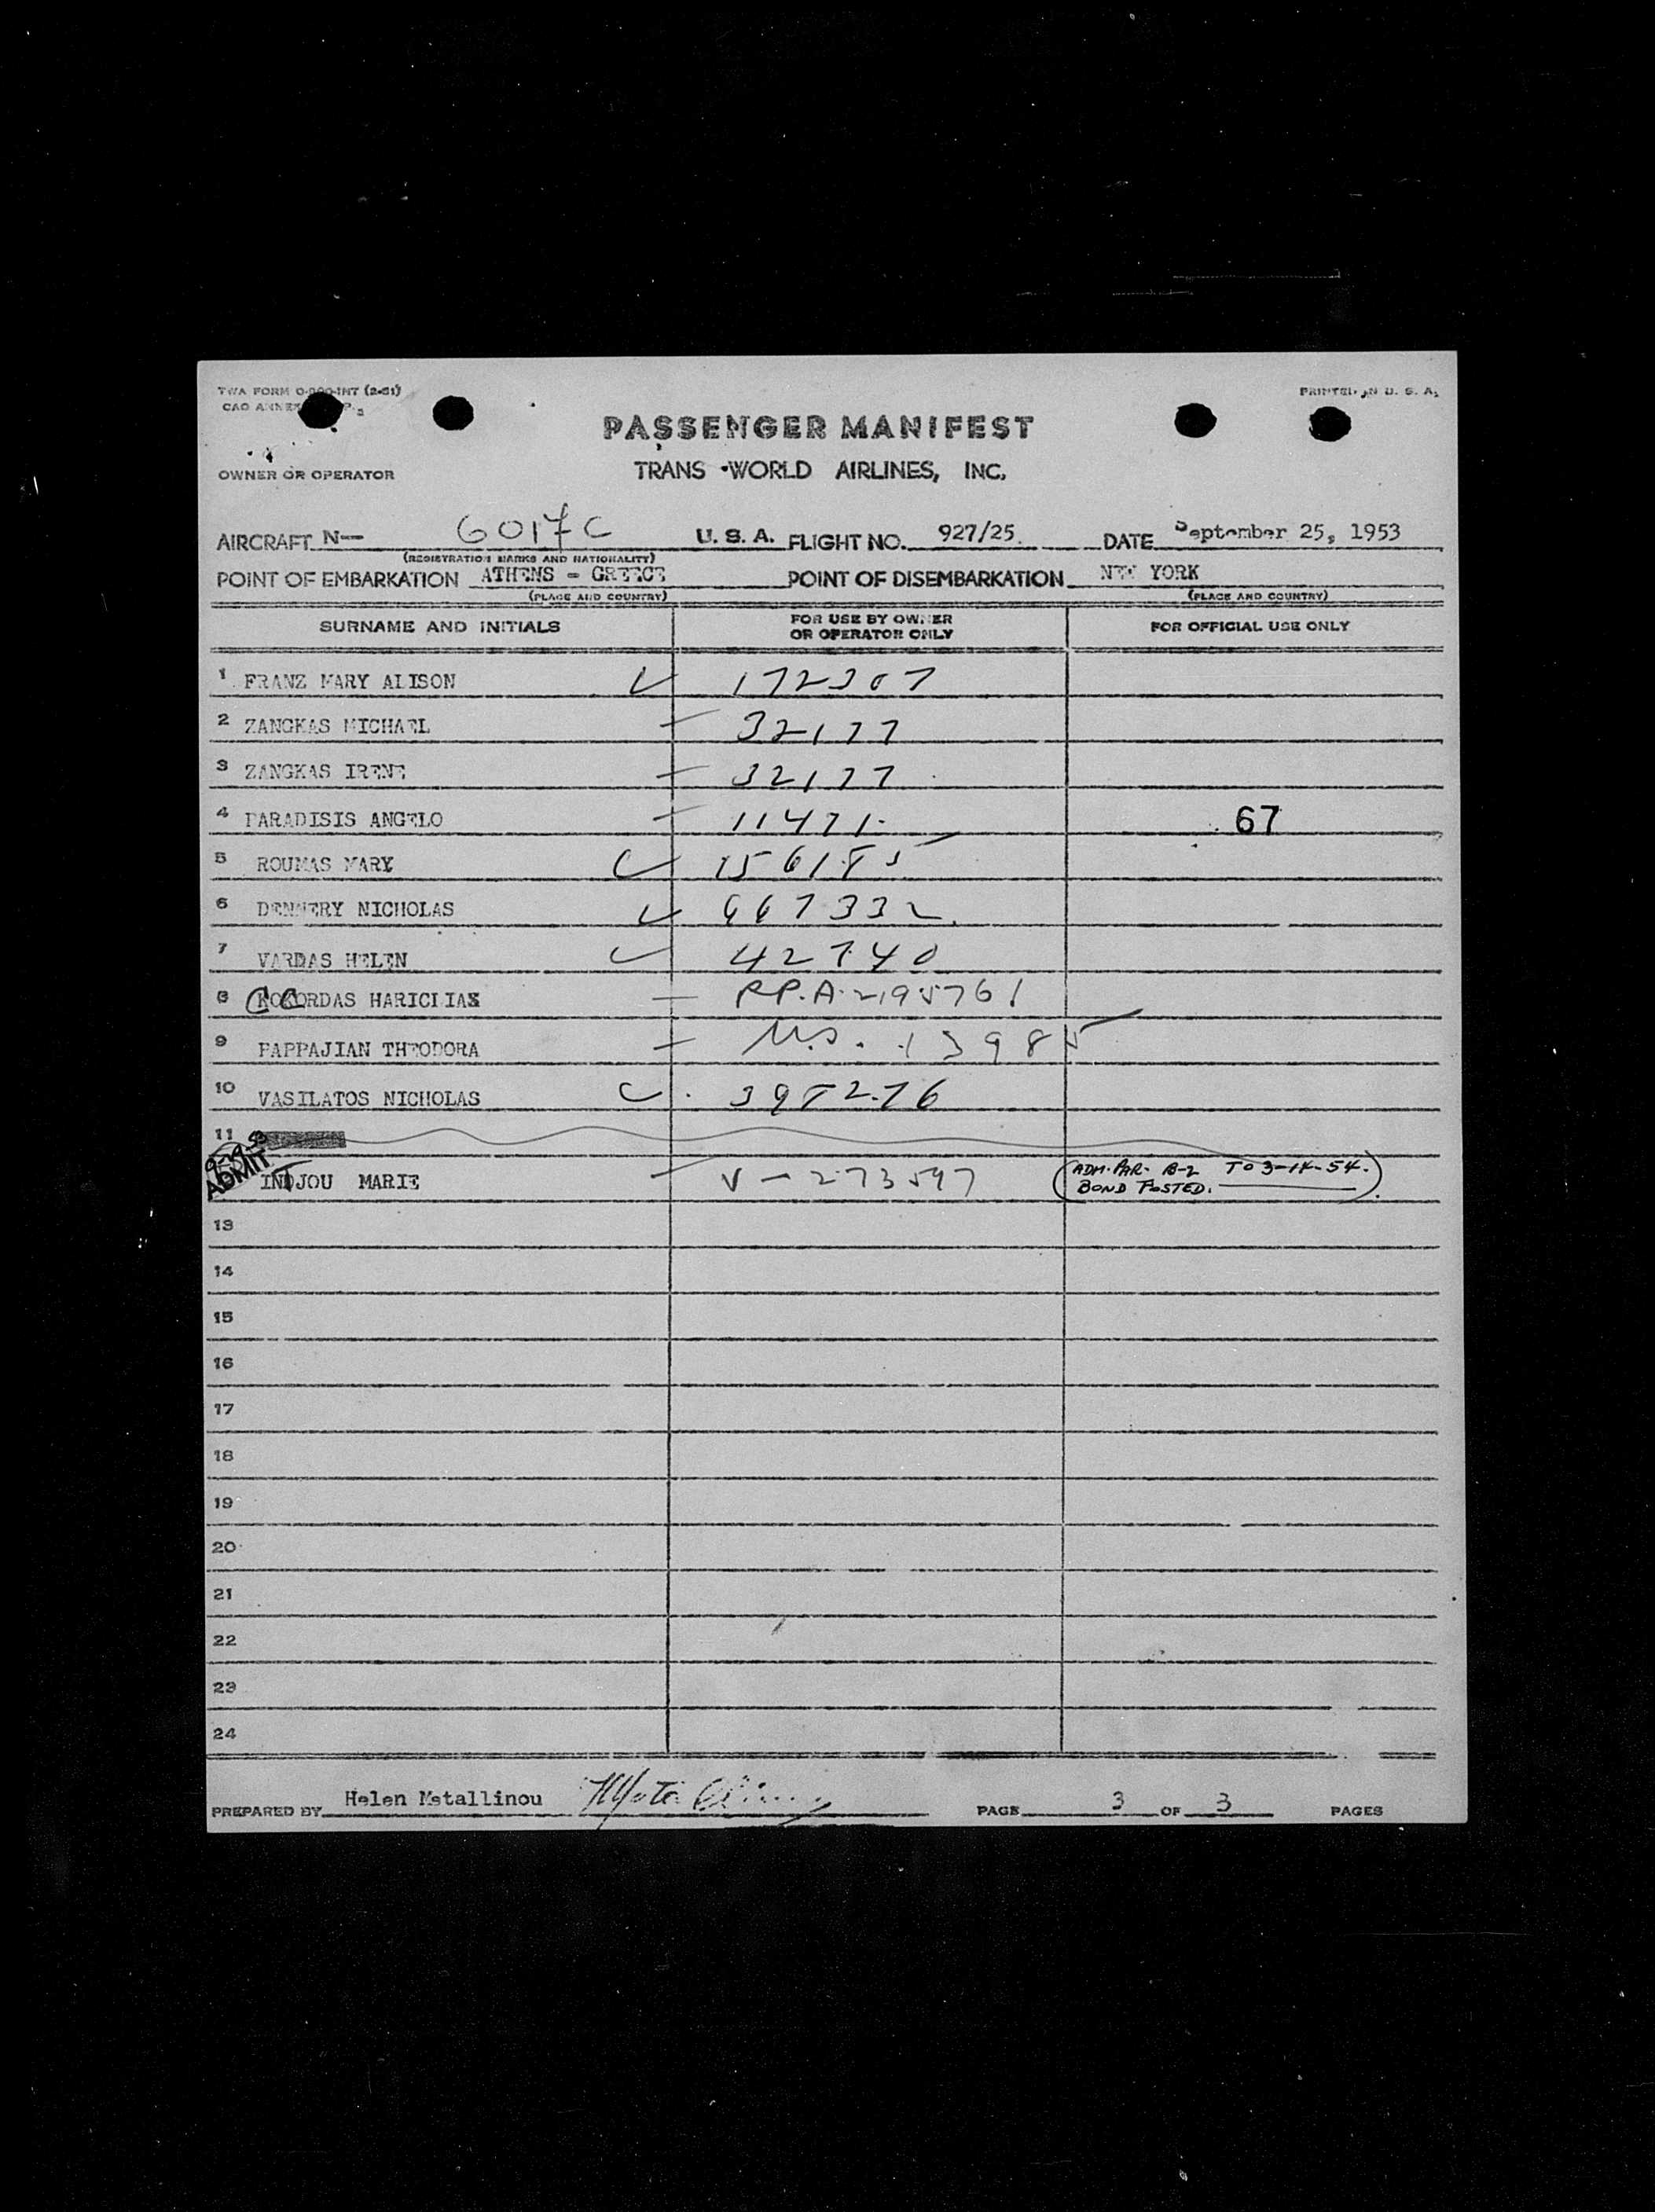 TWA FORM
CAO ANNEX
PRINTED IN U. S. A.
PASSENGER MANIFEST
OWNER OR OPERATOR
TRANS WORLD AIRLINES, INC.
AIRCRAFT N— 6017C U. S. A. FLIGHT NO. 927/25. DATE September 25, 1953
(REGISTRATION MARKS AND NATIONALITY)
POINT OF EMBARKATION ATHENS - GREECE POINT OF DISEMBARKATION NEW YORK
(PLACE AND COUNTRY) (PLACE AND COUNTRY)
SURNAME AND INITIALS FOR USE BY OWNER OR OPERATOR ONLY FOR OFFICIAL USE ONLY
1 FRANZ MARY ALISON 172307
2 ZANGKAS MICHAEL 32177
3 ZANGKAS IRENE 32177
4 PARADISIS ANGELO 11471 67
5 ROUMAS MARY 156185
6 DENNERY NICHOLAS 667332
7 VARDAS HELEN 42740
8 COCORDAS HARICLIAS RP.A. 2195761
9 PAPPAJIAN THEODORA 13985
10 VASILATOS NICHOLAS 398276
11
ADMIT
INTJOU MARIE V-273597 (ADM. PAR. B-2 TO 3-14-54.
BOND POSTED.)
13
14
15
16
17
18
19
20
21
22
23
24
PREPARED BY Helen Metallinou PAGE 3 OF 3 PAGES